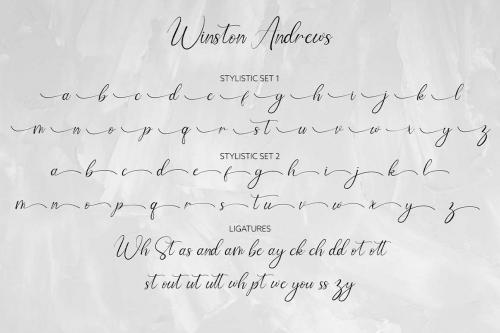 Winston Andrews
STYLISTIC SET 1
a b c d e f g h i j k l
m n o p q r s t u v w x y z
STYLISTIC SET 2
a b c d e f g h i j k l
m n o p q r s t u v w x y z
LIGATURES
Wh St as and am be ay ck ch dd ot ott
st out ut utt wh pt we you ss zy